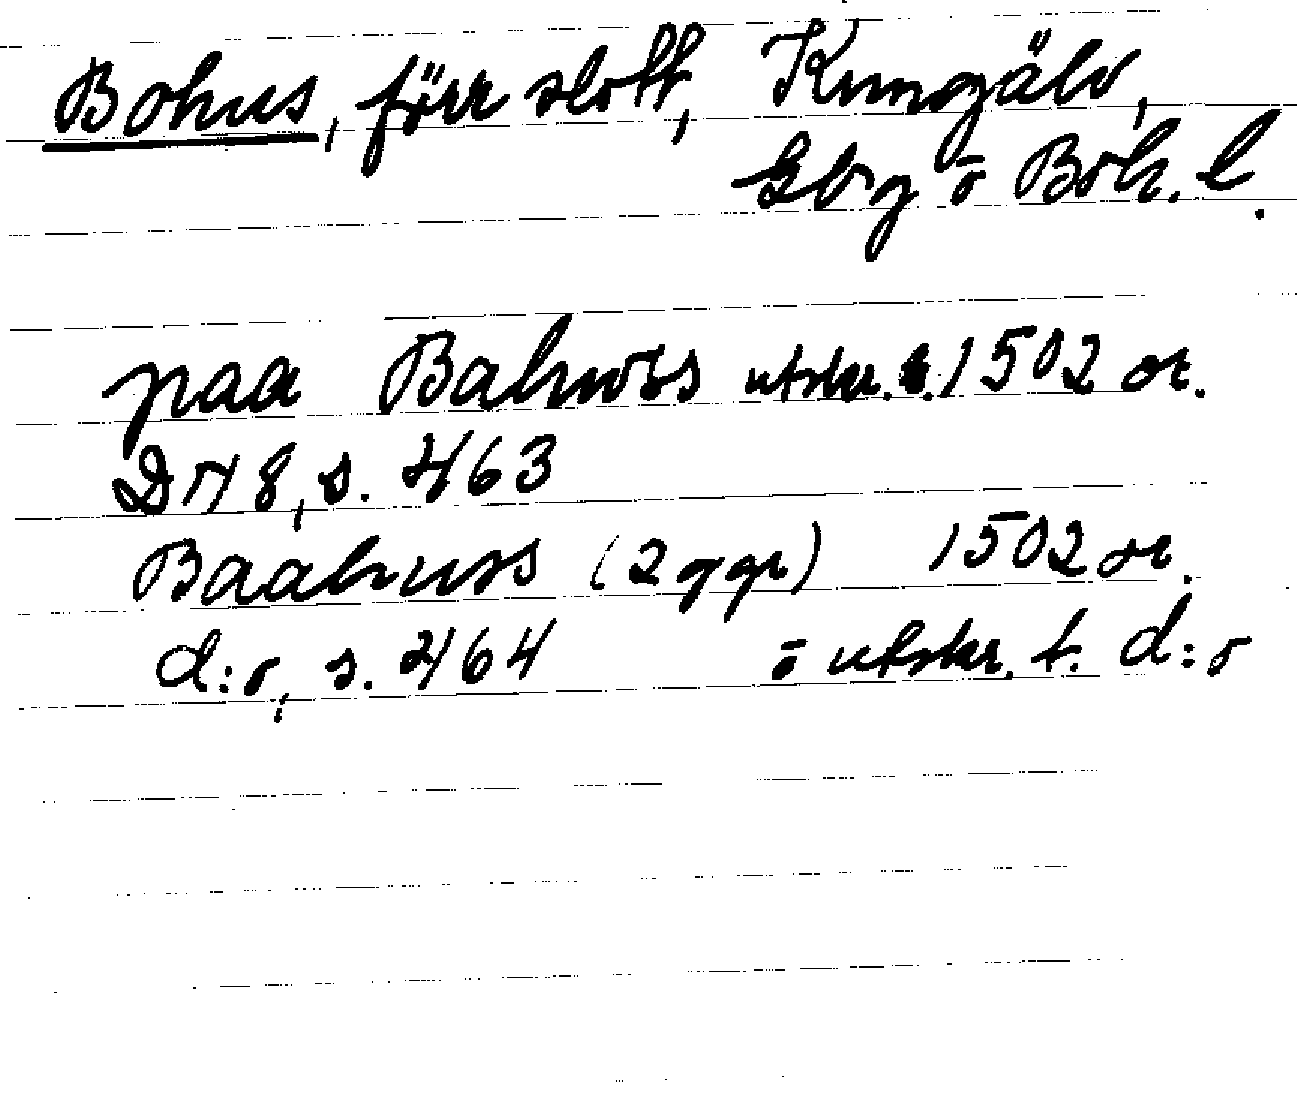 Bohus, förr slott, Kungälv,
Gbg o Boh. l.
paa Bahwss utskr. t. 1502 or.
DN 8, s. 463
Baahuss (2 ggr) 1502 or.
d:o, s. 464 o utskr. t. d:o